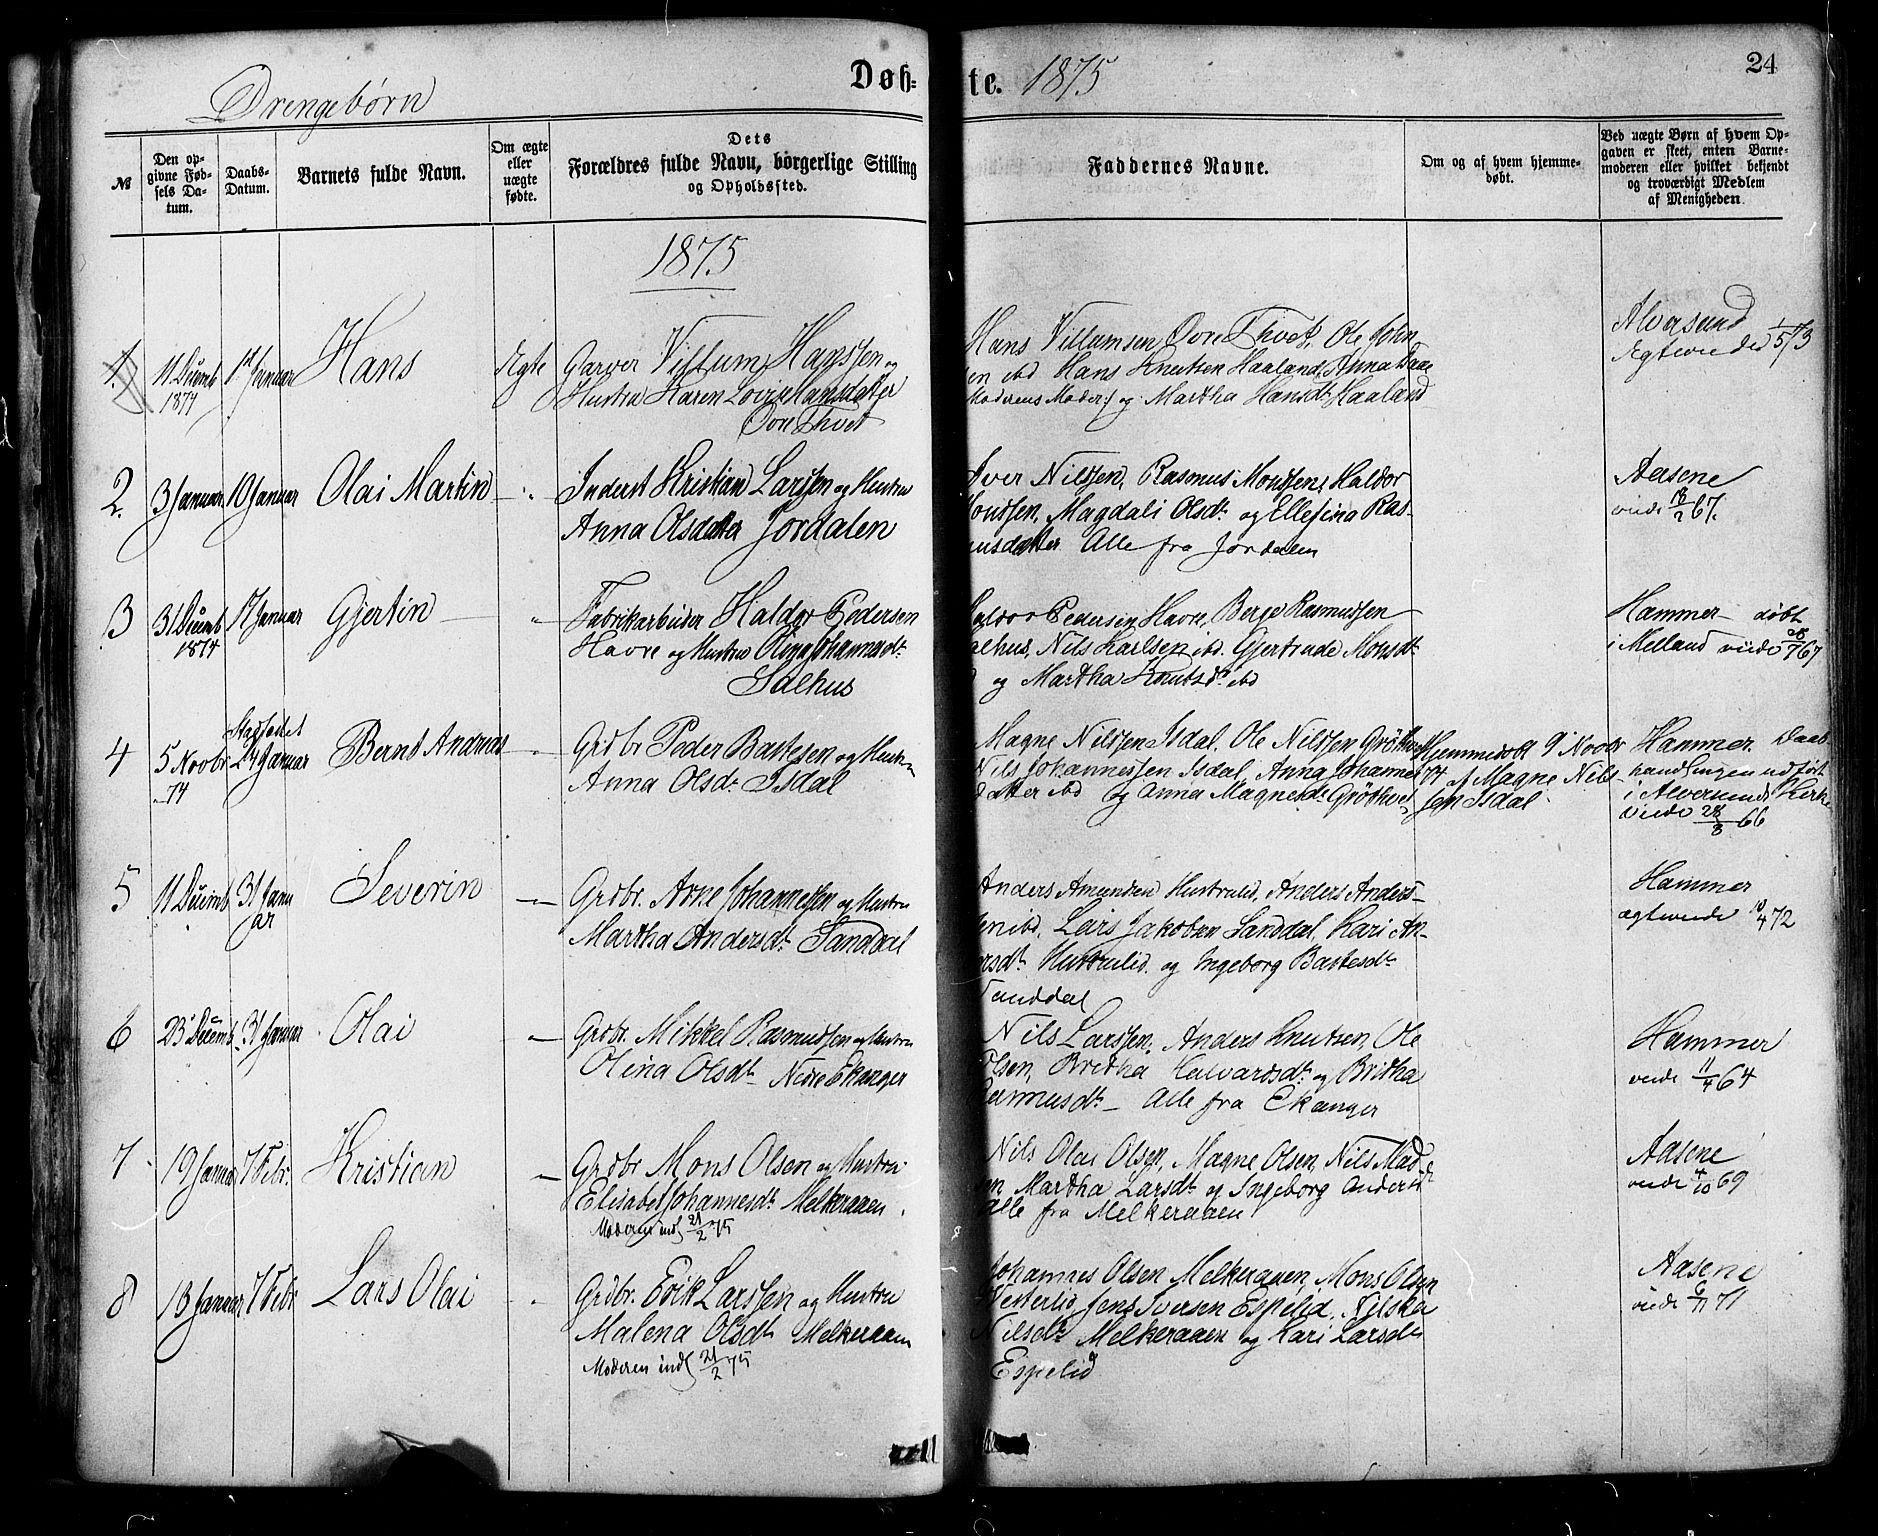 Drengebørn
Døb=
te. 1875
24
№
Den op-
givne Fød-
sels Da-
tum.
Daabs-
Datum.
Barnets fulde Navn.
Om ægte
eller
uægte
fødte.
Dets
Forældres fulde Navn, borgerlige Stilling
og Opholdssted.
Faddernes Navne.
Om og af hvem hjemme-
døbt.
Ved uægte Børn af hvem Op-
gaven er skeet, enten Barne-
moderen eller hvilket bekjendt
og troværdigt Medlem
af Menigheden.
1875
1.
11 Decemb
1874
1ste Januar
Hans
Ægte
Garver Villum Hanssen og
Hustru Karen Lovise Hansdatter
Ovre Thvet
Hans Villumsen Ovre Thvet, Ole John
sen ibd Hans Knutsen Haaland, Anna
Moderens Moder og Martha Hansdt Haaland
Alversund
Ægteviede 1/5 73
2.
3 Januar
10 Januar
Olai Martin
Inderst Kristian Larssen og Hustru
Anna Olsdatter Jordalen
Iver Nilssen, Rasmus Monssen, Haldor
Monssen, Magdali Olsdt og Ellefina Ras-
musdatter Alle fra Jordalen
Aasene
viede 18/2 67.
3
31 Decemb
1874
17 Januar
Gjertin
Fabrikarbeider Haldor Pedersen
Havre og Hustru Olina Johannesdt
Salhus
Haldor Pedersen Havre, Berge Rasmussen
Salhus, Nils Karlsen ibd. Gjertrude Monsdt
og Martha Knutsdt ibd
Hammer døbt
i Melland viede 28/7 67
4
5 Novbr
74
Stadfæstet
24 Januar
Bernt Andreas
Grdbr Peder Bastesen og Hustru
Anna Olsdt Isdal
Magne Nilssen Isdal, Ole Nilssen Grøthvet
Nils Johannessen Isdal, Anna Johannes
datter ibd og Anna Magnesdt Grøthvet
Hjemmedøbt 9 Novbr
74 af Magne Nils-
sen Isdal
Hammer. Daab
handlingen udført
i Alversunds Kirke
viede 28/8 66
5
11 Decemb
31 Janu
ar
Severin
Grdbr. Arne Johannessen og Hustru
Martha Andersdt Sanddal
Anders Amundsen Hustrulid, Anders Anders-
sen ibd, Lars Jakobsen Sanddal, Kari An-
dersdt Hustrulid og Ingeborg Bastesdt
Sanddal
Hammer
ægteviede 10/4 72
6
23 Decemb.
31 Januar
Olai
Grdbr. Mikkel Rasmussen og Hustru
Olina Olsdt Nedre Ekanger
Nils Larssen, Anders Knutsen, Ole
Olsen, Britha Halvardsdt og Britha
Rasmusdt – Alle fra Ekanger
Hammer
viede 11/4 64
7
19 Januar
7 Febr.
Kristian
Grdbr Mons Olsen og Hustru
Elisabet Johannesdt Melkeraaen
Moderen indl 21/2 75
Nils Olai Olsen, Magne Olsen, Nils Mad
sen Martha Larsdt og Ingeborg Andersdt
Alle fra Melkeraaen
Aasene
viede 4/10 69
8
13 Januar
7 Febr
Lars Olai
Grdbr. Erik Larssen og Hustru
Malena Olsdt Melkeraaen
Moderen indl 21/2 75
Johannes Olsen Melkeraaen, Mons Olsen
Vesterlid, Jens Iversen Espelid, Nilska
Nilsdt Melkeraaen og Kari Larsdt
Espelid
Aasene
viede 6/11 71